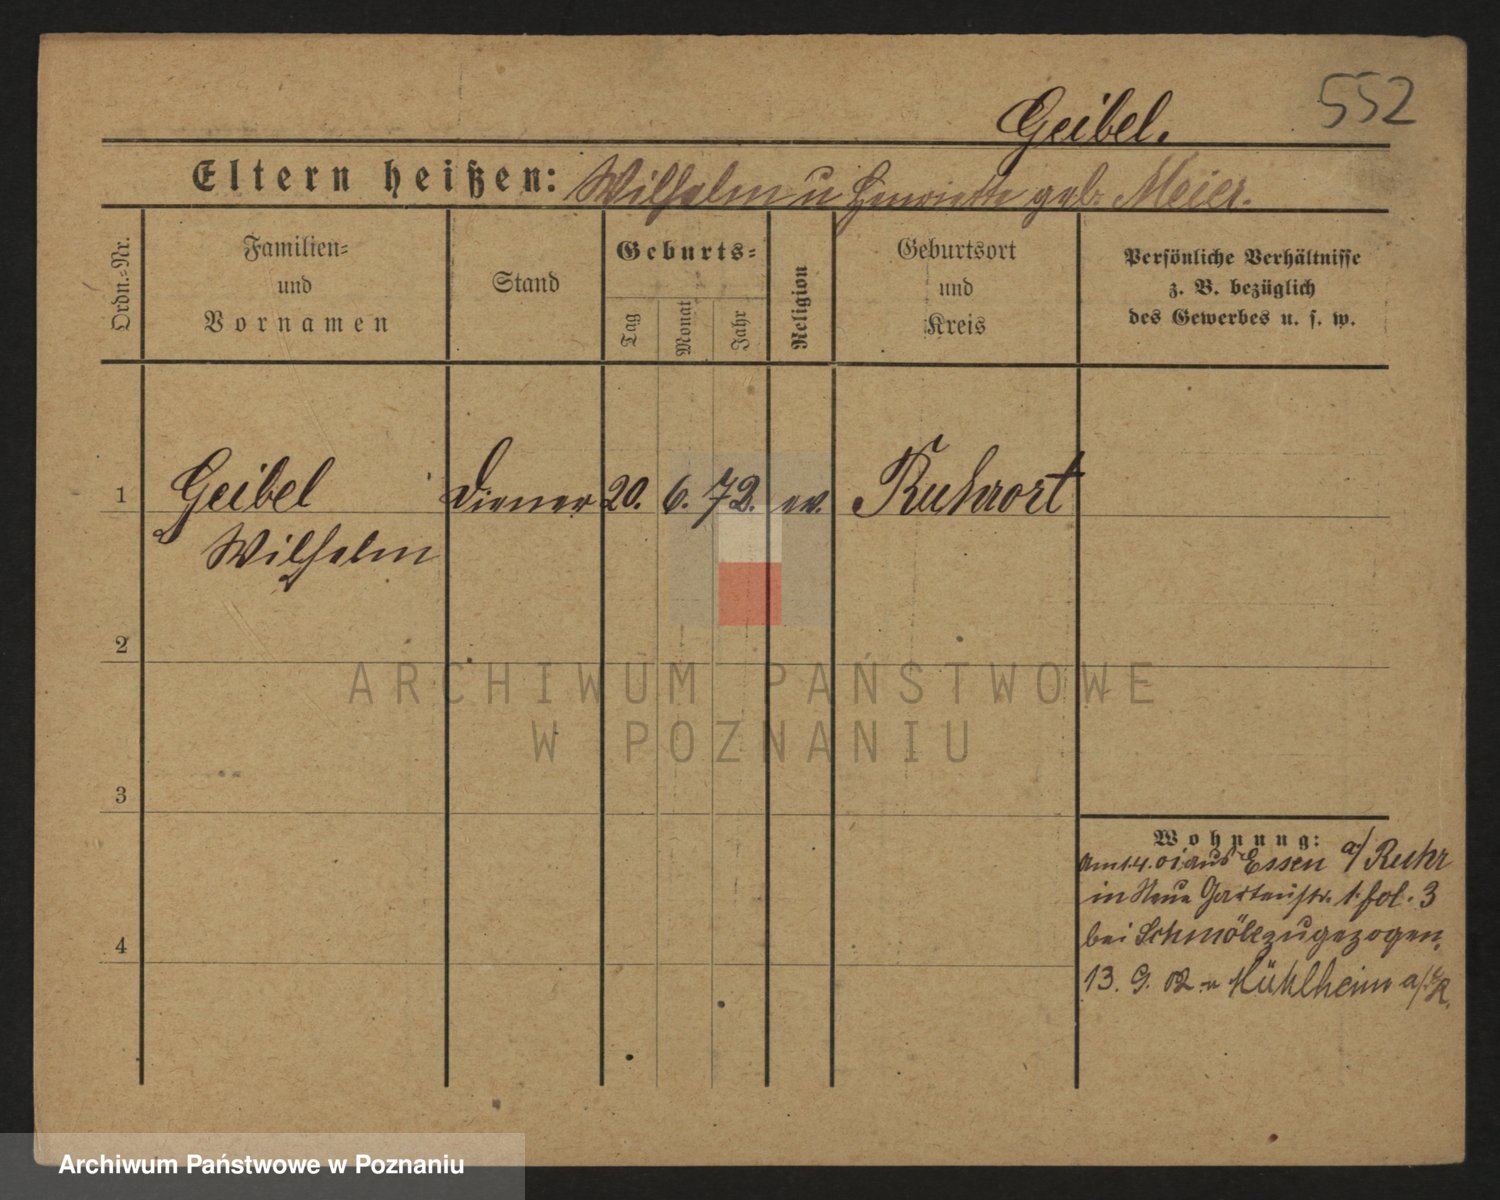 552
Geibel.
Eltern heißen: Wilhelm u Henriette geb. Meier.
Ordn.=Nr.
Familien=
und
Vornamen
Stand
Geburts=
Tag
Monat
Jahr
Religion
Geburtsort
und
Kreis
Persönliche Verhältnisse
z. B. bezüglich
des Gewerbes u. s. w.
1 Geibel Diener 20. 6. 72. ev. Ruhrort
Wilhelm
2
3
4
Wohnung:
Am 1.4.01 aus Essen a/ Ruhr
in Neue Gartenstr. 1. fol. 3
bei zugezogen.
13. 9. 02 n Mühlheim a/R.
ARCHIWUM PAŃSTWOWE
W POZNANIU
Archiwum Państwowe w Poznaniu